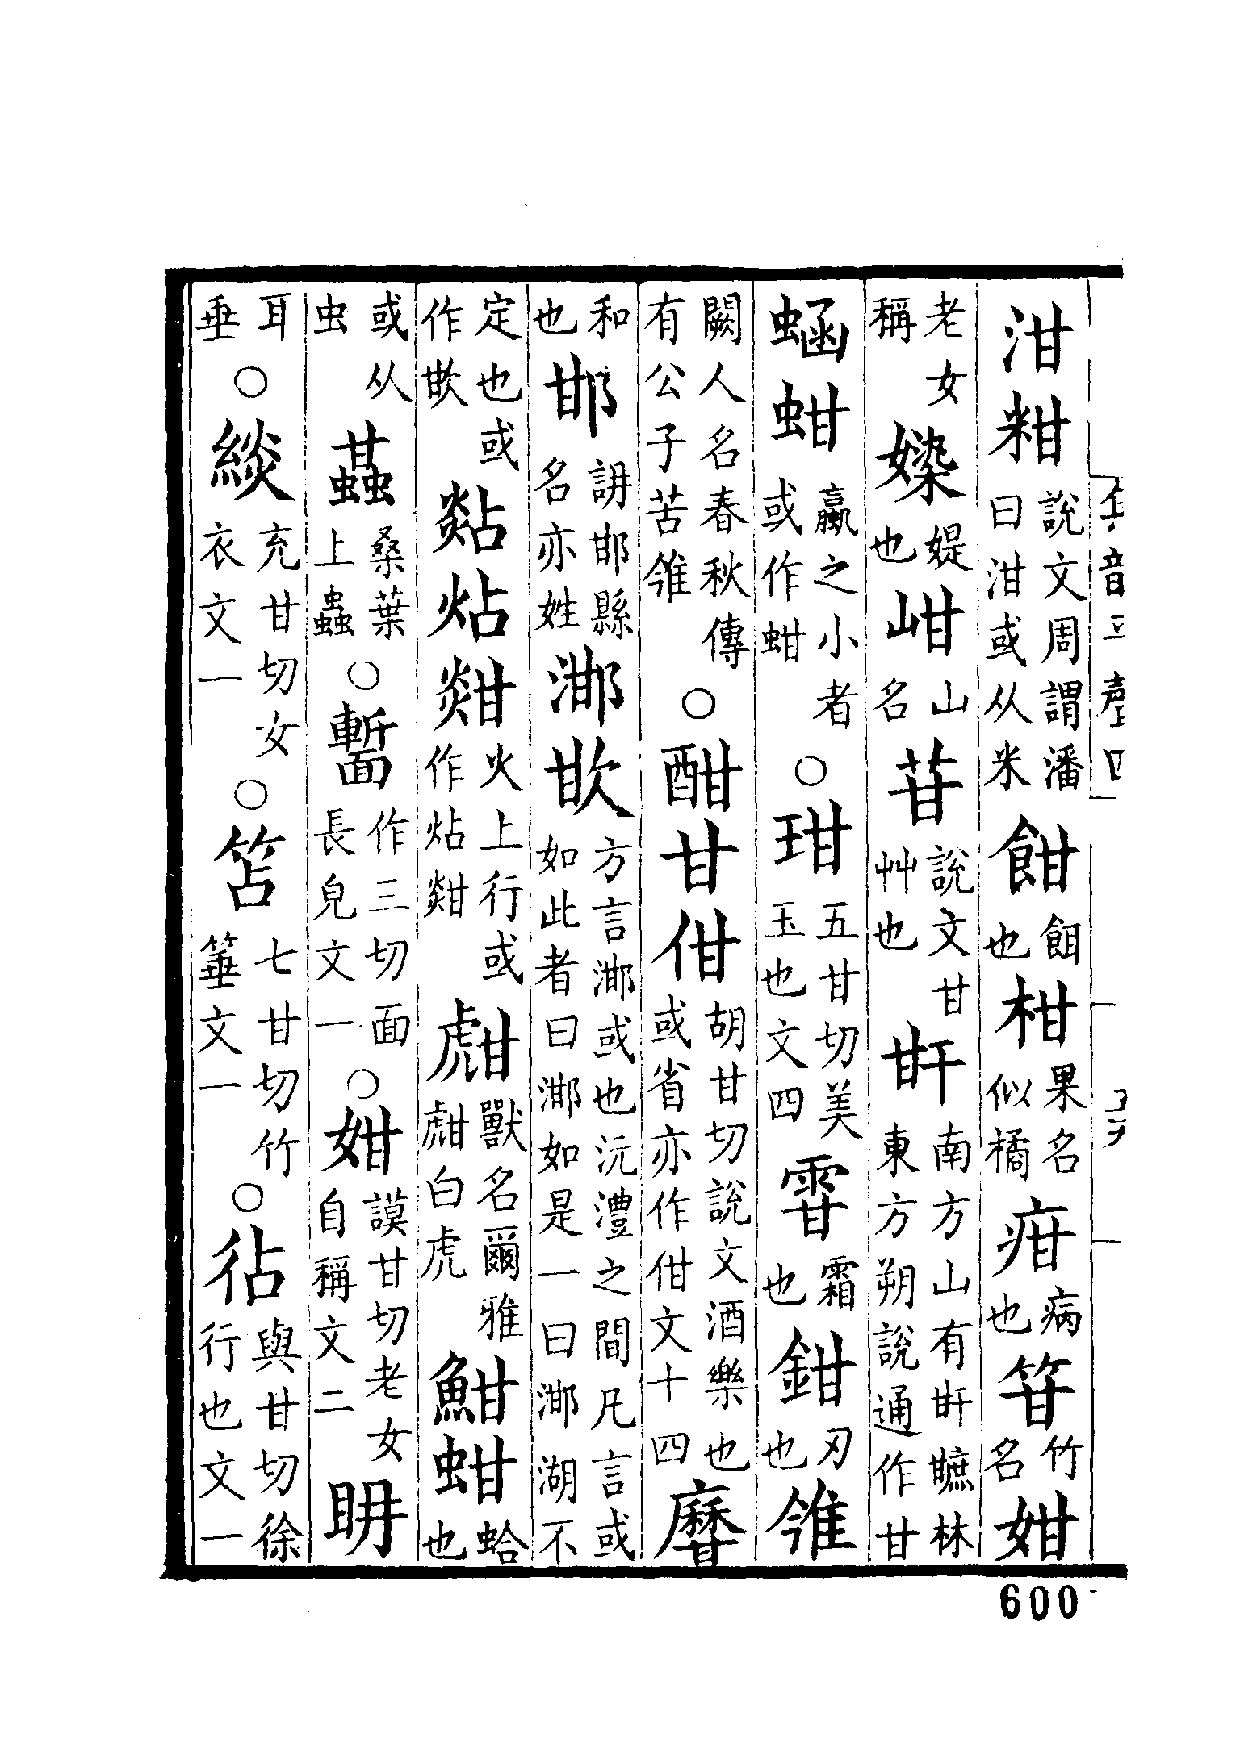 泔䊻說文周謂潘曰泔或从米䤗餌也柑果名似橘疳病也笴竹名姏
老女稱㜞媞也㟏山名苷說文甘艸也𤯌南方山有𤯌䗪林東方朔說通作甘
蜬蚶蠃之小者或作蚶○玵五甘切美玉也文四霅霜也鉗刃也䧸
闕人名春秋傳有公子苦䧸○酣甘佄胡甘切說文酒樂也或省亦作佄文十四䃫
和也邯䛁邯縣名亦姓𣵛㰦方言𣵛或也沅澧之間凡言或如此者曰𣵛如是一曰𣵛湖不
定也或作㰦㷔炶㶰火上行或作炶㶰甝獸名爾雅甝白虎魽蚶蛤也
或从虫䗣桑葉上蟲○䭕作三切面長皃文一○姏謨甘切老女自稱文二䎃
耳垂○緂充甘切女衣文一○䇞七甘切竹箠文一○㣶與甘切徐行也文一
集韻平聲四
600